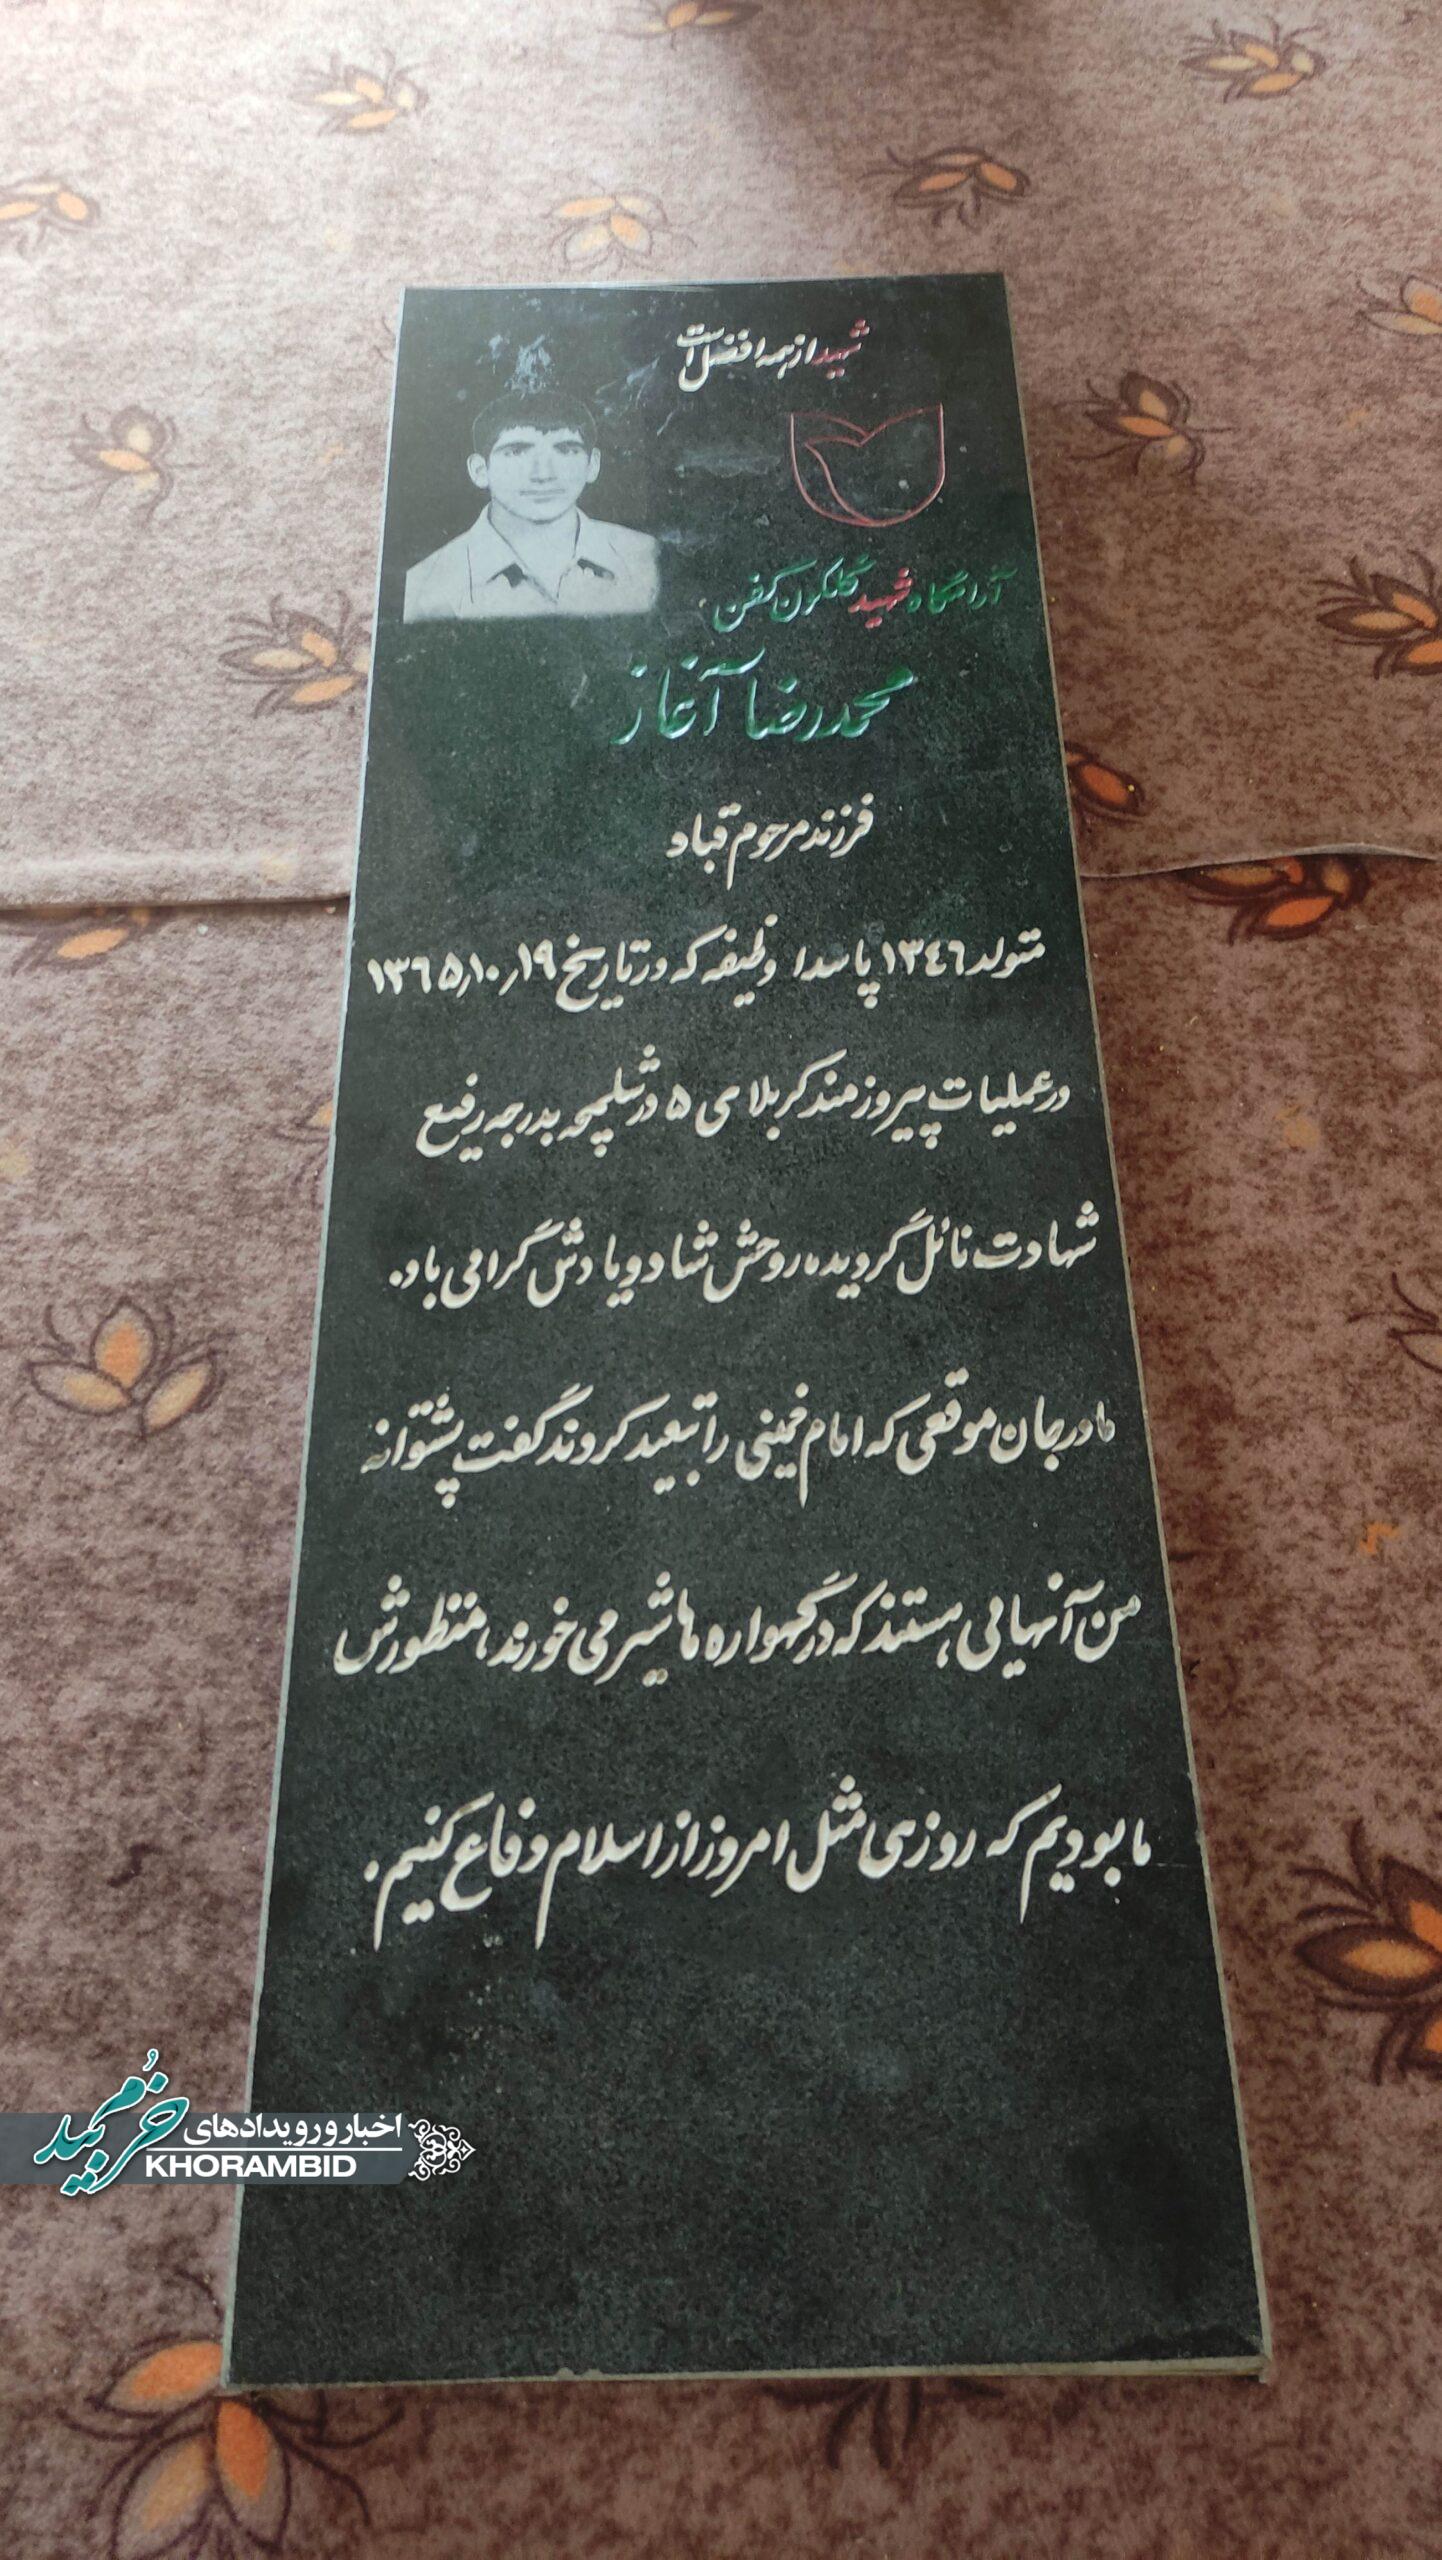 شهید از همه افضل است
آرامگاه شهید گلگون کفن
محمدرضا آغاز
فرزند مرحوم قباد
متولد ۱۳۴۶ پاسدا وظیفه که در تاریخ ۱۳۶۵٫۱۰٫۱۹
در عملیات پیروزمند کربلای ۵ در شلمچه بدرجه رفیع
شهادت نائل گردیده روحش شاد و یادش گرامی باد.
مادر جان موقعی که امام خمینی را تبعید کردند گفت پشتوانه
من آنهایی هستند که در گهواره ها شیر می خورند، منظورش
ما بودیم که روزی مثل امروز از اسلام دفاع کنیم.
اخبار و رویدادهای
خرمبید
KHORAMBID